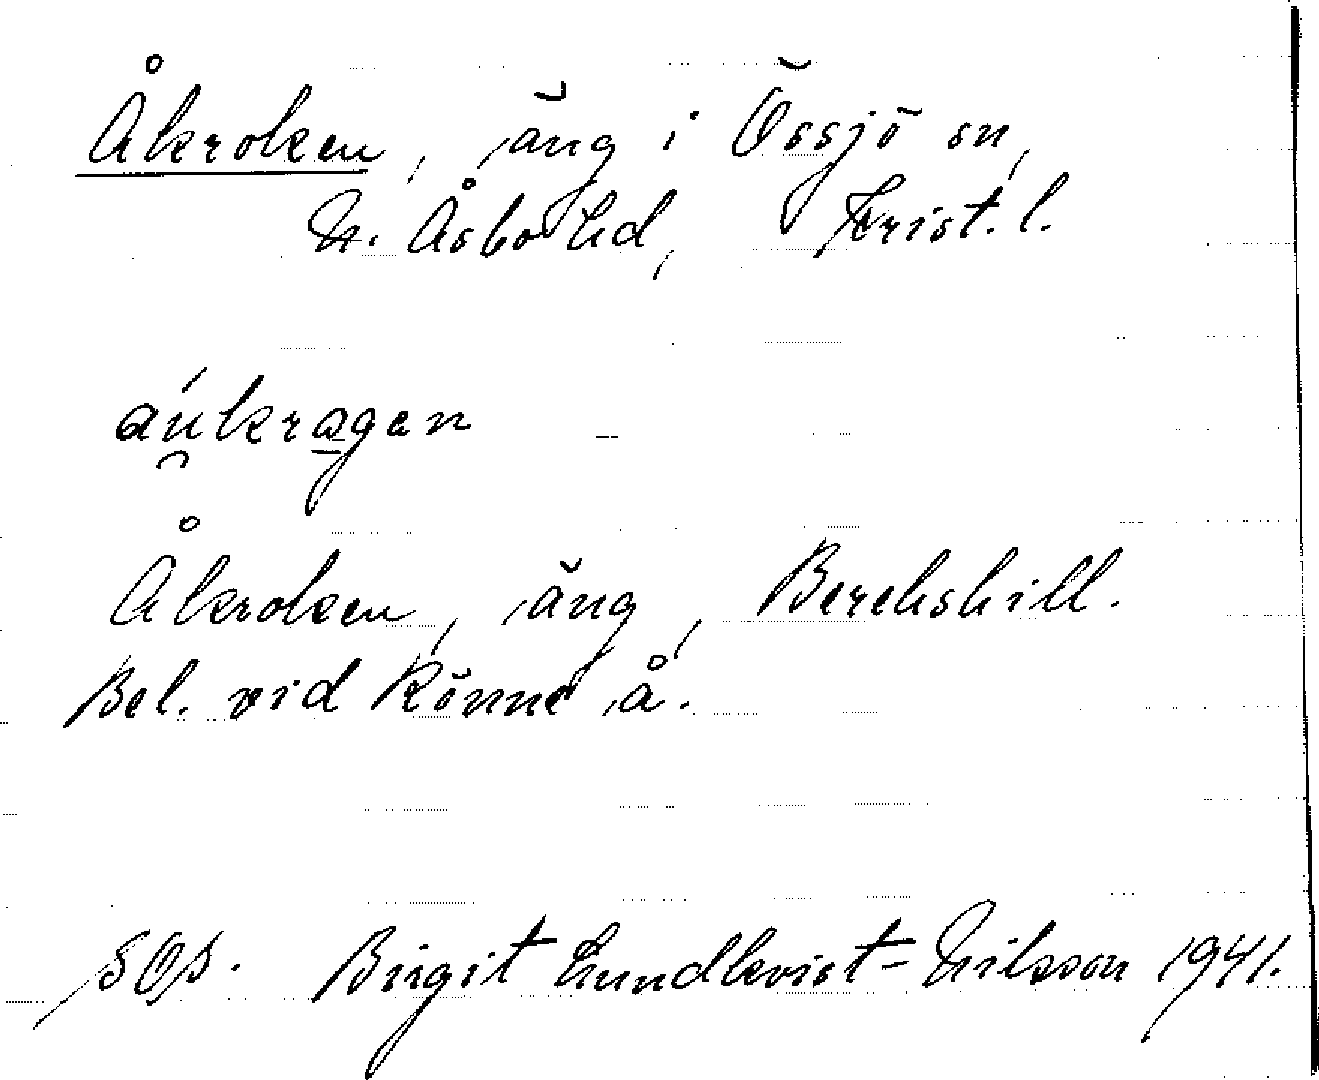 Åkroken, äng i Össjö sn,
N. Åsbo hd, Krist. l.
áu̯krågen
Åkroken, äng, Berehshill.
Bel. vid Rönne å.
SOS. Birgit Lundkvist-Nilsson 1941.